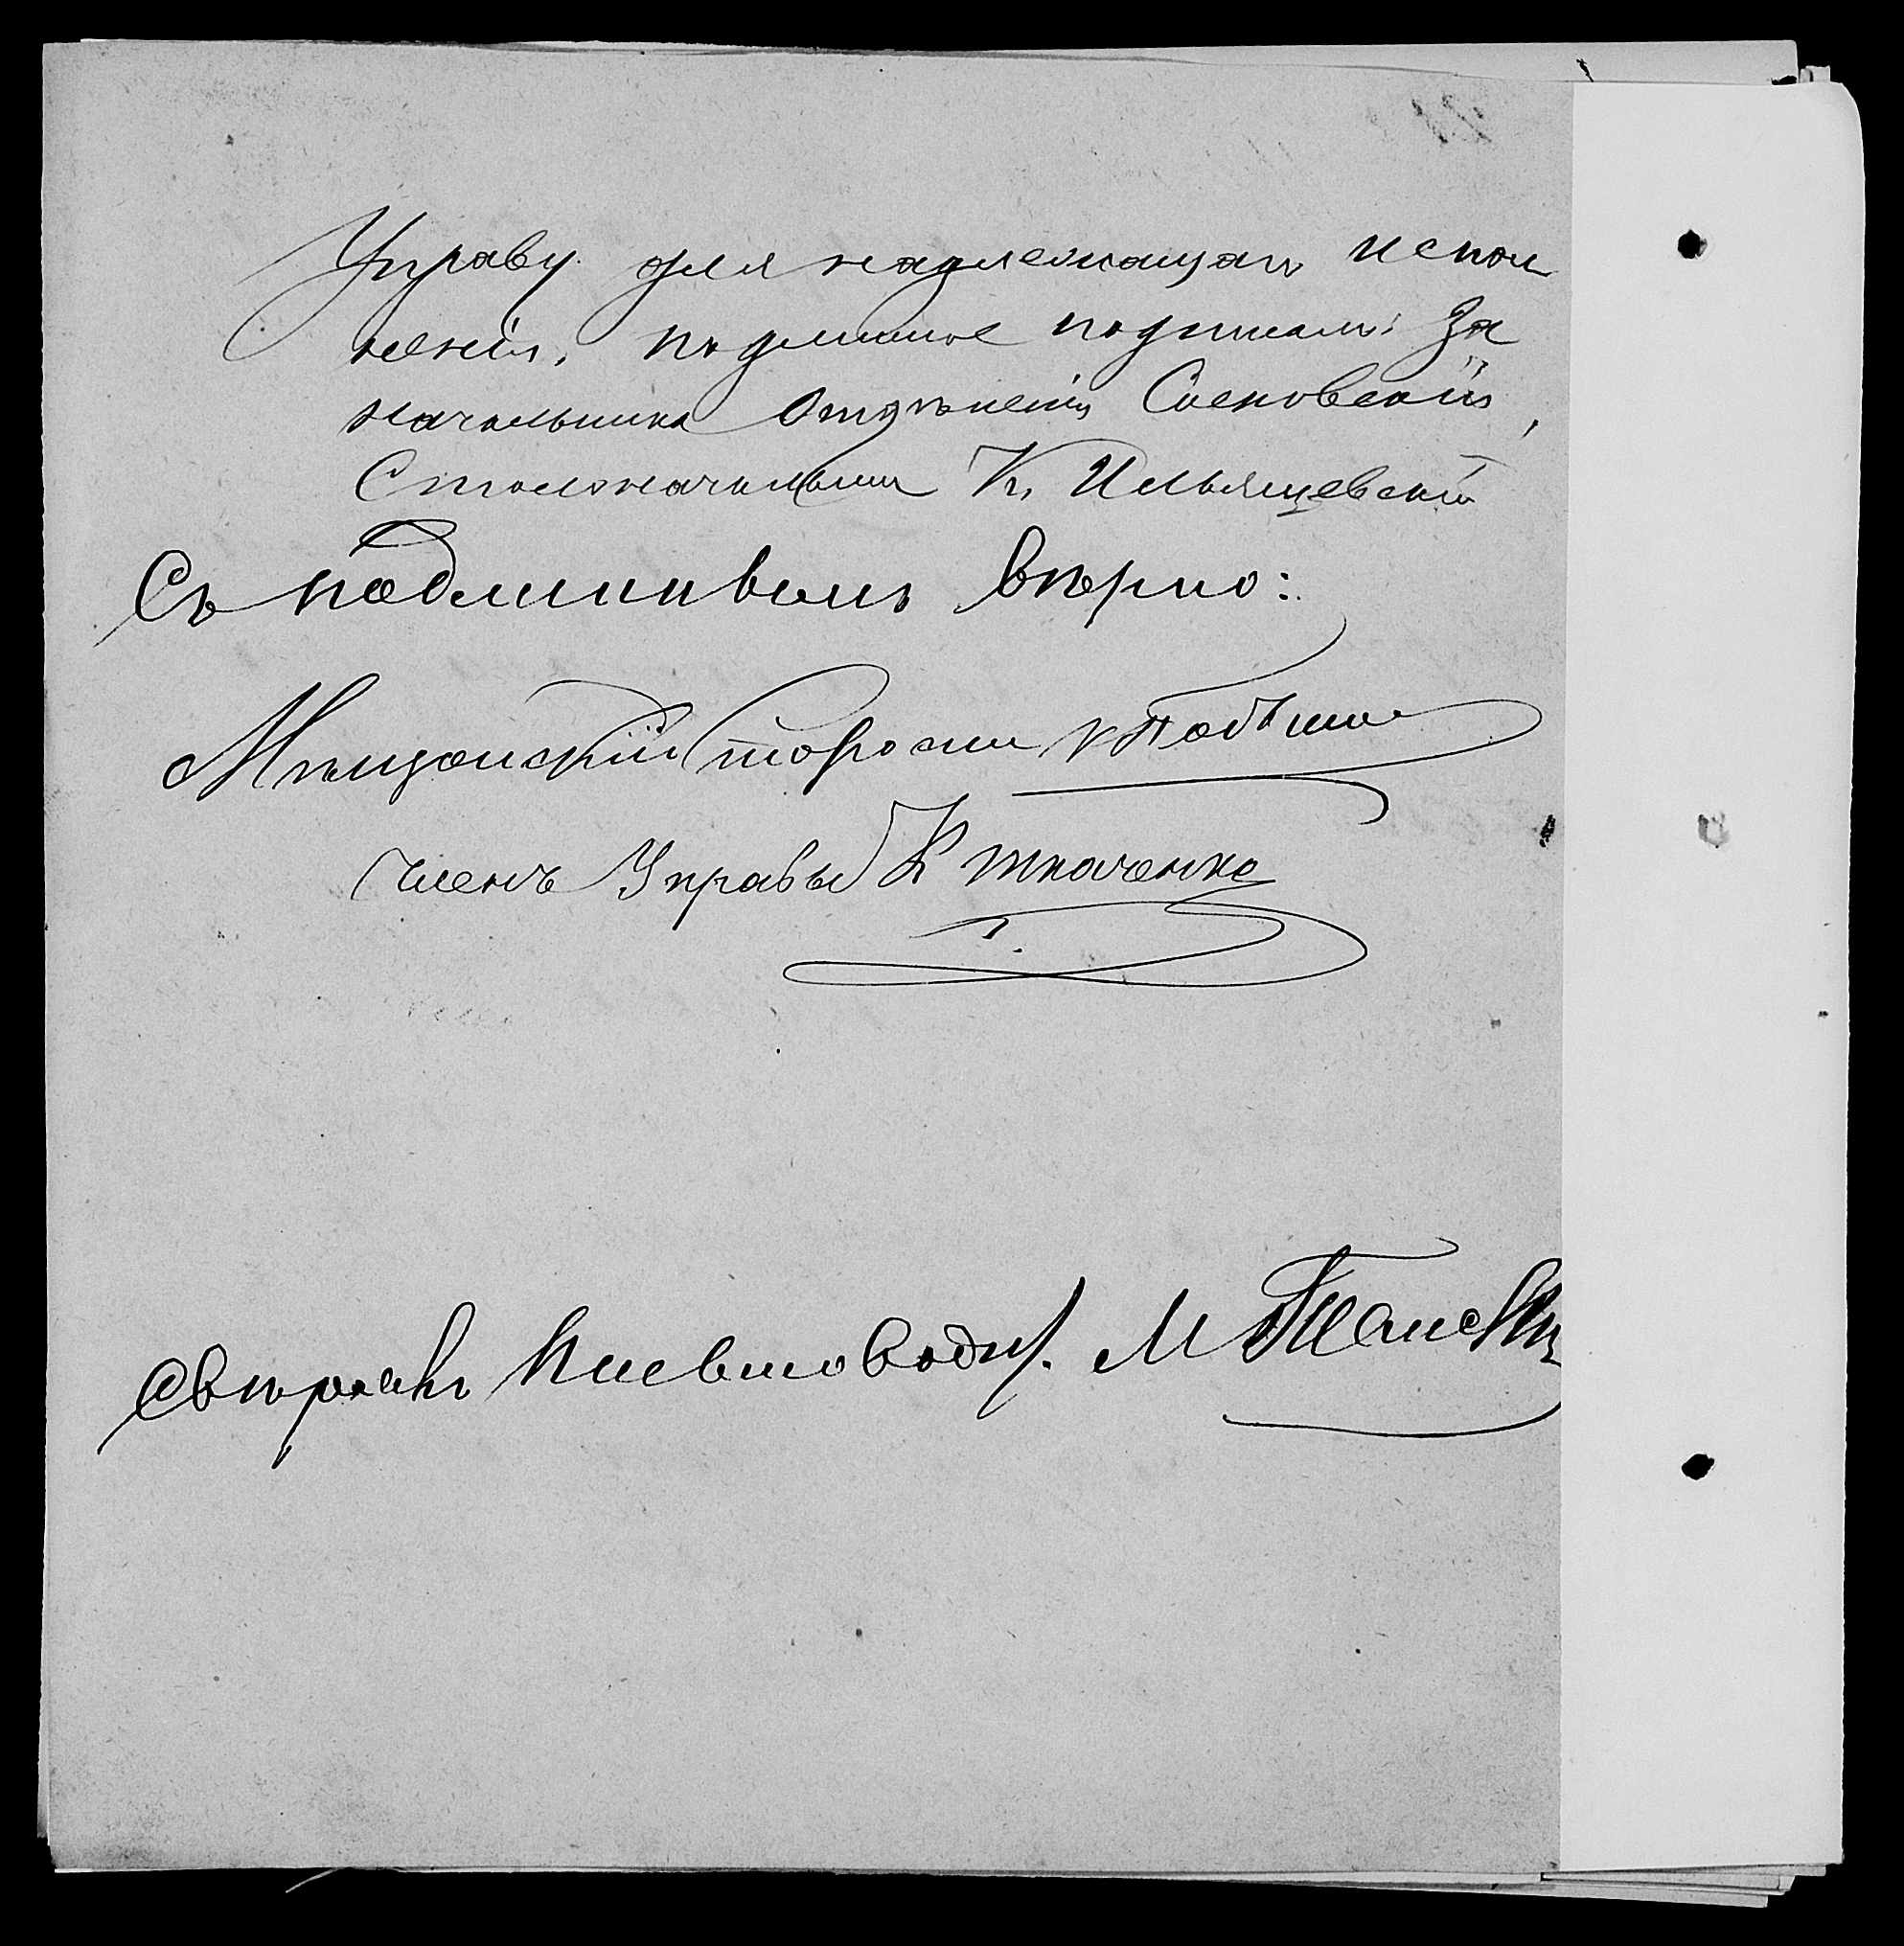 Управу для надлежащаго испол
ненія, подлинное подписали: За
Начальника Отдѣленія Сосновскій,
Столоначальникъ К. Ильяшевскій
Съ подлиннымъ вѣрно:
Мѣщанскій Староста
Членъ Управы К Ткаченко
Свѣрялъ Письмоводит. М